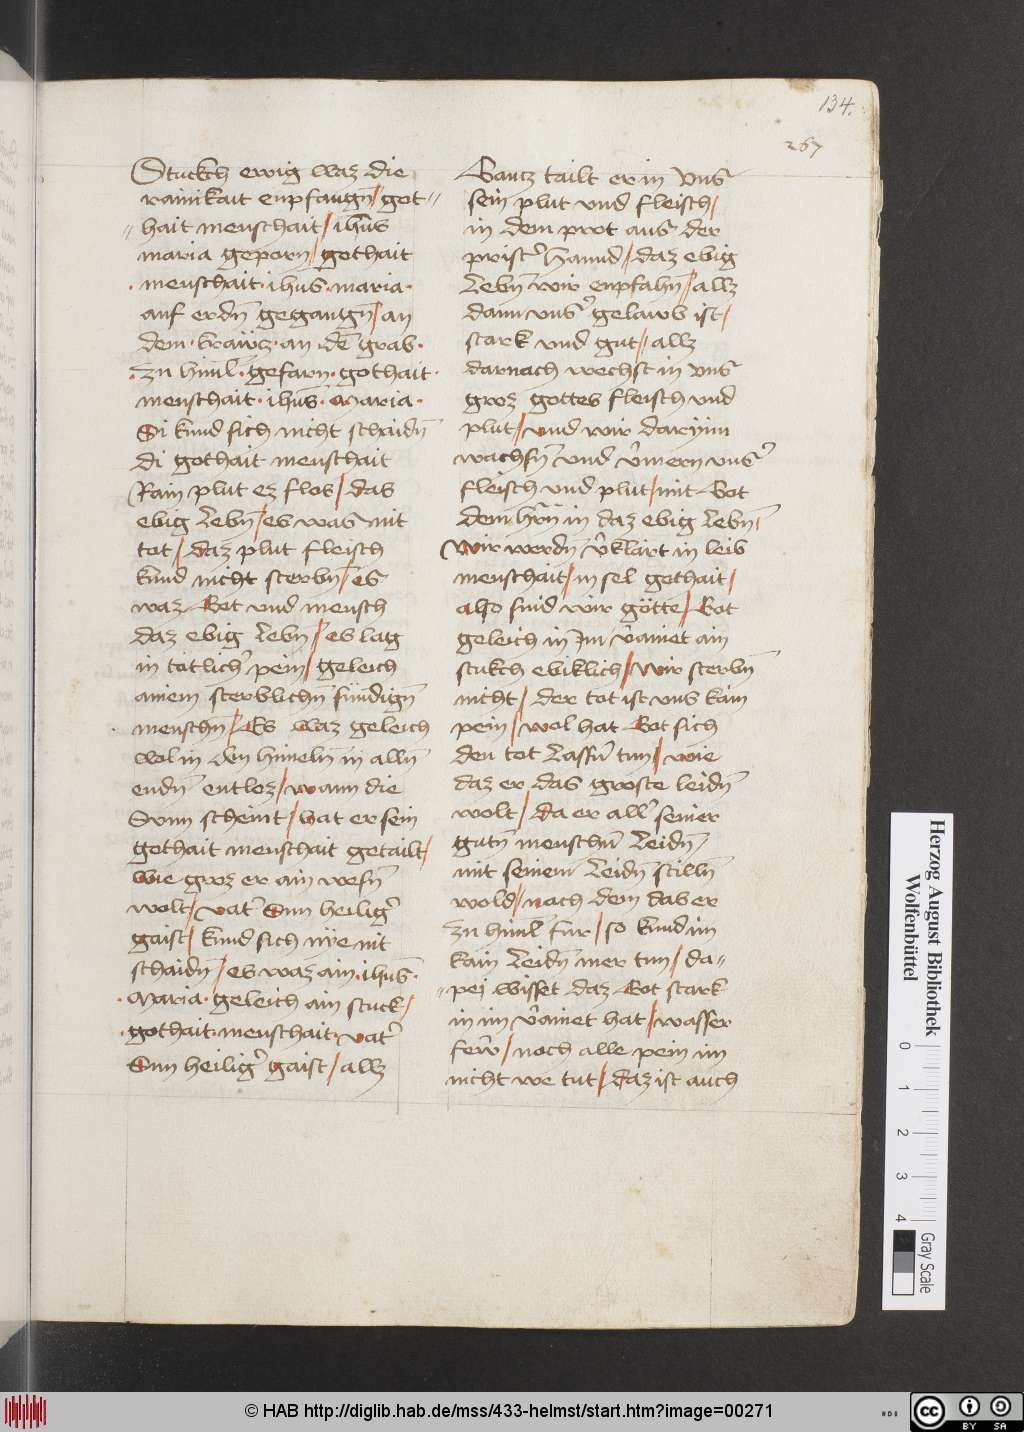 134.
267
Stuckch ewig waz die
rainikait enpfangn̄ / got„
„hait menschait / ihūs
maria geporn / gothait
· menschait · ihus · maria ·
auf erdn̄ gegangn̄ / an
dem · krawcz · an · dē grab ·
· zu himl̄ · gefarn · gothait ·
menschait · ihūs · Maria ·
Si kund sich nicht schaidn̄
di gothait menschait
Rain plut ez flos / das
ebig lebn̄ / es was mit
tot / daz plut fleisch
kund nicht sterbn̄ / es
waz Got vnd mensch
daz ebig lebn̄ / es lag
in totlichʼ pein / geleich
ainem sterblichn̄ sundign̄
menschn̄ / Es waz geleich
wol in den himeln̄ in alln̄
endn̄ entloz / wann die
Sunn scheint / hat er sein
gothait menschait getailt /
wie groz er ain wesn̄
wolt / vatʼ Sun heiligʼ
gaist / kund sich nye nit
schaidn̄ / es waz ain · ihūs ·
· Maria · geleich ain stuck /
· gothait · menschait · vatʼ
Sun heiligʼ gaist / allz
Gancz tailt er in vnsʼ
sein plut vnd fleisch /
in dem prot aus der
pristʼ hannd / daz ebig
lebn̄ wir enpfahn̄ / allz
dann vnsʼ gelawb ist /
stark vnd gut / allz
darnach wechst in vnsʼ
groz gottes fleisch vnd
plut / vnd wir darynn
wachsn̄ vnd vʼmern vnsʼ
fleisch vnd plut / mit Got
dem hr̄n in daz ebig lebn̄ /
Wir werdn̄ vʼklart in leib
menschait / in sel gothait /
also sind wir götte / Got
geleich in Im vʼainet ain
stukch ebiklich / wir sterbn̄
nicht / der tot ist vns kain
pein / wol hat Got sich
den tot lassn̄ tun / wie
daz er das groste leidn̄
wolt / da er allʼ seiner
gutn̄ menschn̄ leidn̄
mit seinem leidn̄ stilln̄
wold / nach dem das er
zu himl̄ fur / so kund im
kain leidn̄ mer tun / da„
„pej wisset daz Got stark
in im vʼainet hat / wasser
fewʼ / noch alle pein im
nicht we tut / daz ist auch
Herzog August Bibliothek
Wolfenbüttel
0
1
2
3
4
Gray Scale
© HAB http://diglib.hab.de/mss/433-helmst/start.htm?image=00271
cc
BY SA